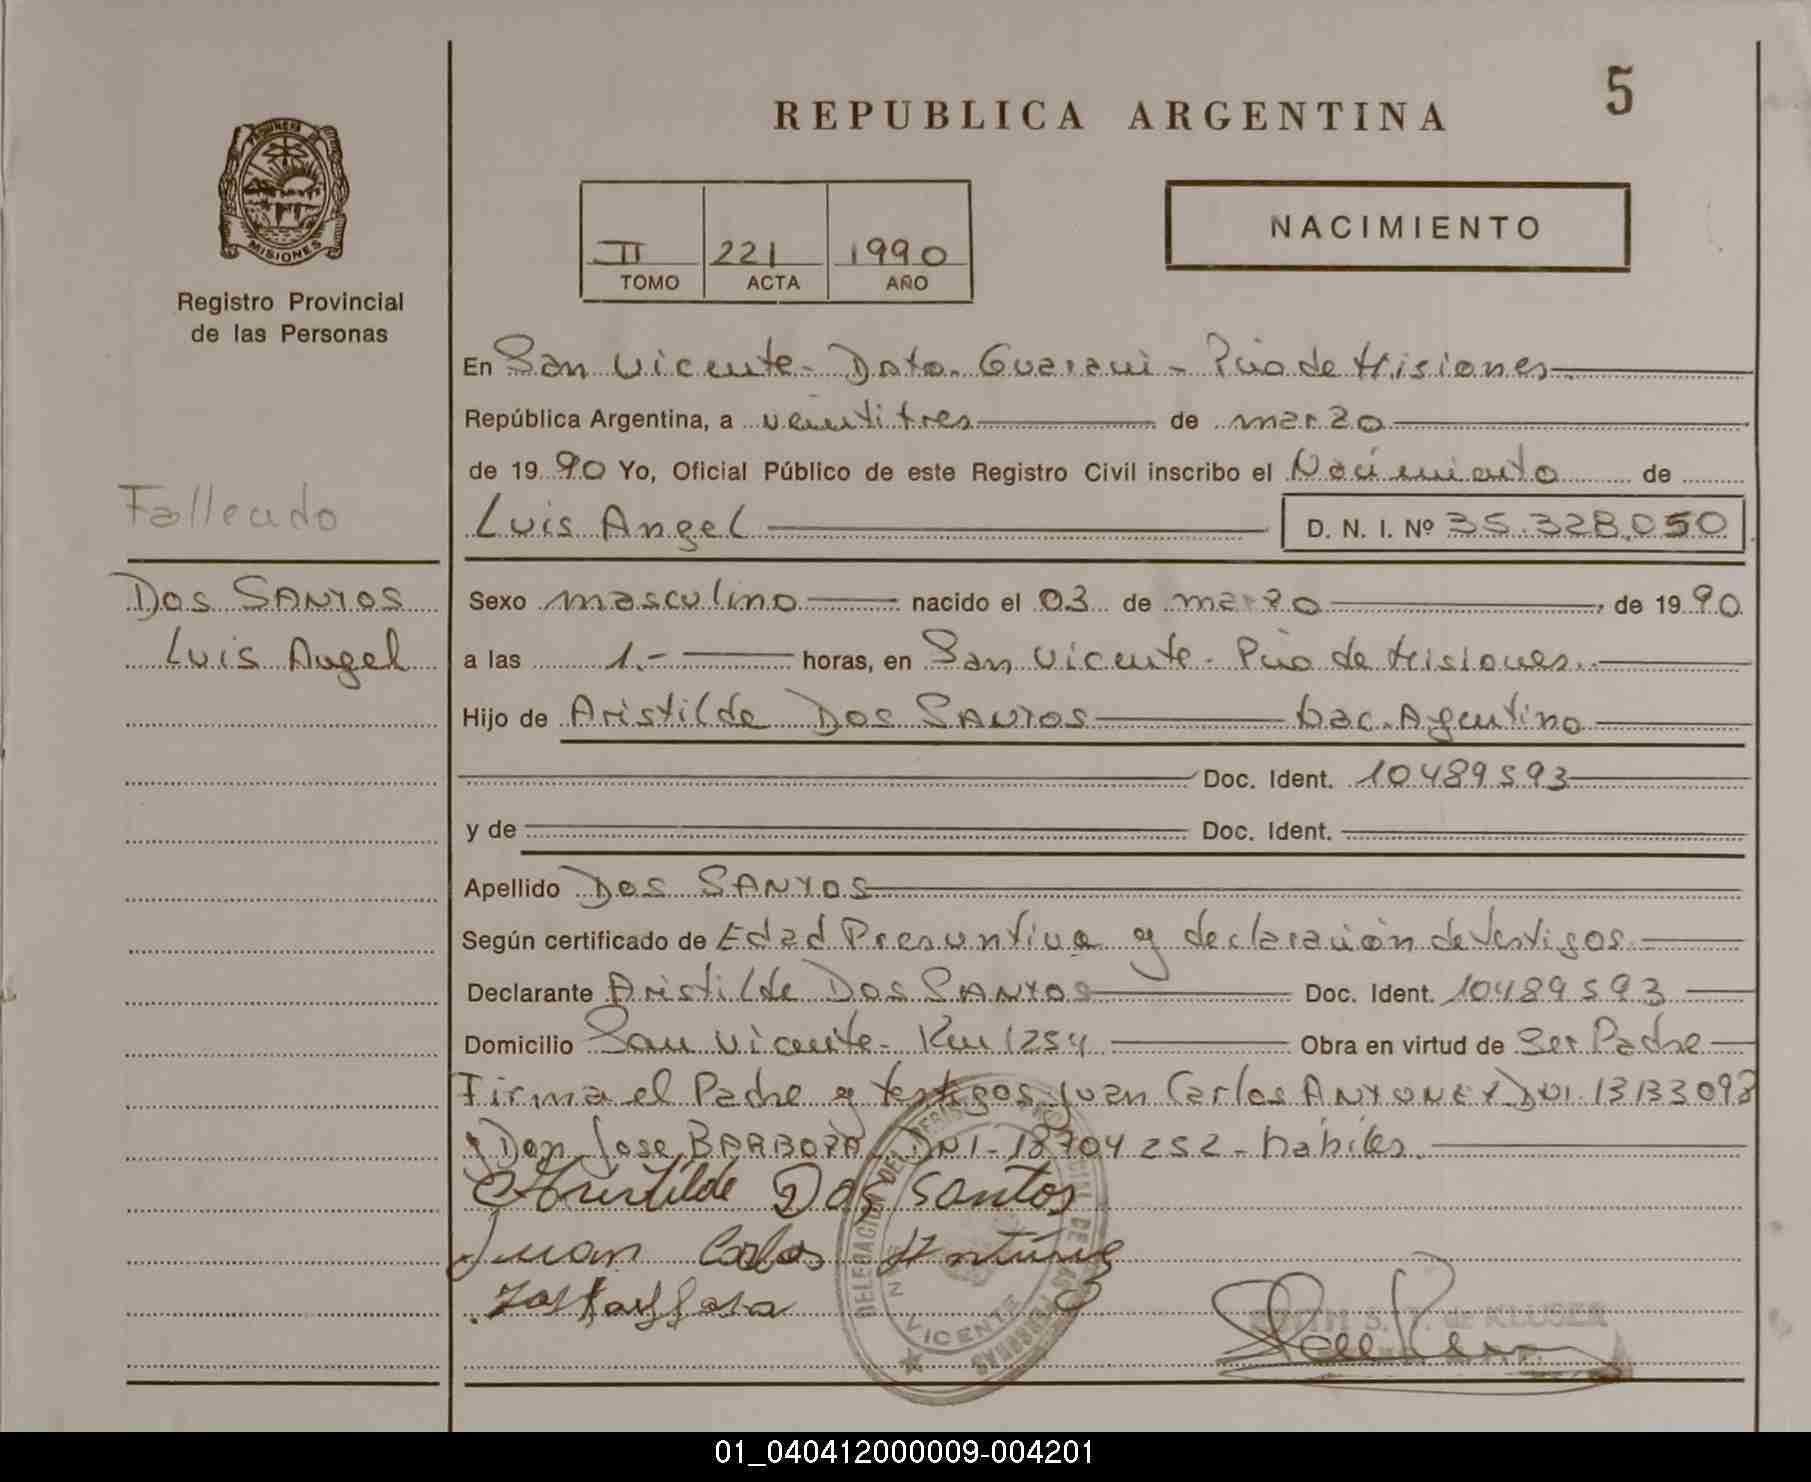 REPUBLICA ARGENTINA
5
PROVINCIA DE MISIONES
Registro Provincial
de las Personas
II 221 1990
TOMO ACTA AÑO
NACIMIENTO
En San Vicente - Dpto. Guarani - Pcia de Misiones
República Argentina, a veintitres de marzo
de 1990 Yo, Oficial Público de este Registro Civil inscribo el Nacimiento de
Luis Angel D. N. I. Nº 35.328.050
Fallecido
Dos SANTOS
Luis Angel
Sexo masculino nacido el 03 de marzo de 1990
a las 1.- horas, en San Vicente - Pcia de Misiones.
Hijo de Aristilde Dos SANTOS Nac. Argentino
Doc. Ident. 10489593
y de Doc. Ident.
Apellido Dos SANTOS
Según certificado de Edad Presuntiva y declaración de testigos
Declarante Aristilde Dos SANTOS Doc. Ident. 10489593
Domicilio San Vicente - Km 1254 Obra en virtud de Ser Padre
Firma el Padre y testigos Juan Carlos ANTUNEZ DNI 13133098
y Don Jose BARBOZA DNI - 18704252 - habiles.
Aristilde Dos Santos
Juan Carlos Antunez
VICENTE
S. T. de KLUSER
01_040412000009-004201